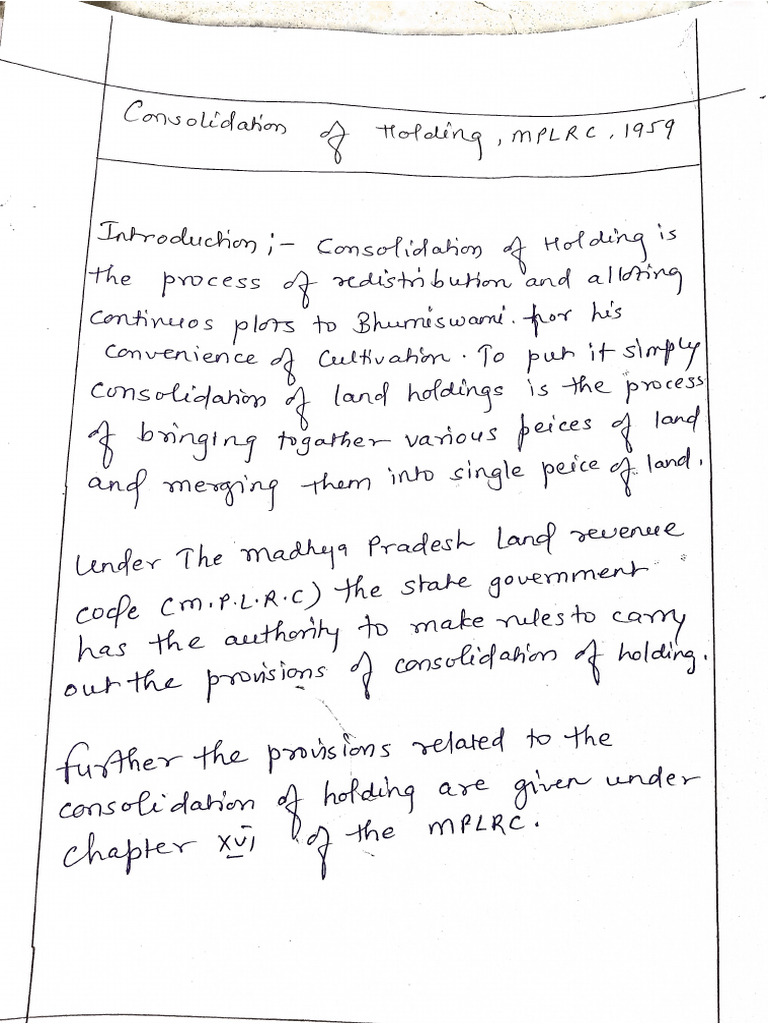 Consolidation of Holding, MPLRC, 1959
Introduction ;- Consolidation of Holding is
the process of redistribution and alloting
continuos plots to Bhumiswami. for his
convenience of Cultivation. To put it simply
consolidation of land holdings is the process
of bringing togather various peices of land
and merging them into single peice of land.
Under The Madhya Pradesh Land revenue
code (M.P.L.R.C) the state government
has the authority to make rules to carry
out the provisions of consolidation of holding.
further the provisions related to the
consolidation of holding are given under
chapter XVI of the MPLRC.